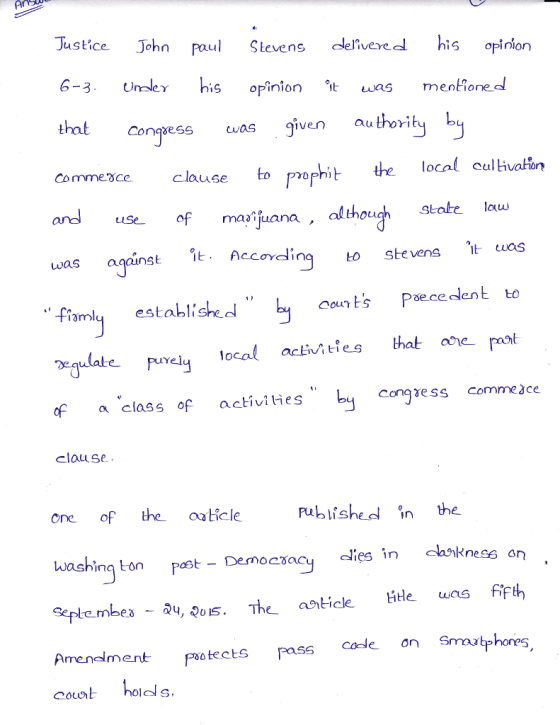 Answ
Justice John paul Stevens delivered his opinion
6-3. Under his opinion it was mentioned
that congress was given authority by
commerce clause to prophit the local cultivation
and use of marijuana, although state law
was against it. According to stevens it was
"firmly established" by court's precedent to
regulate purely local activities that are part
of a "class of activities" by congress commerce
clause.
One of the article published in the
Washington post - Democracy dies in darkness on
September - 24, 2015. The article title was fifth
Amendment protects pass code on smartphones,
court holds.